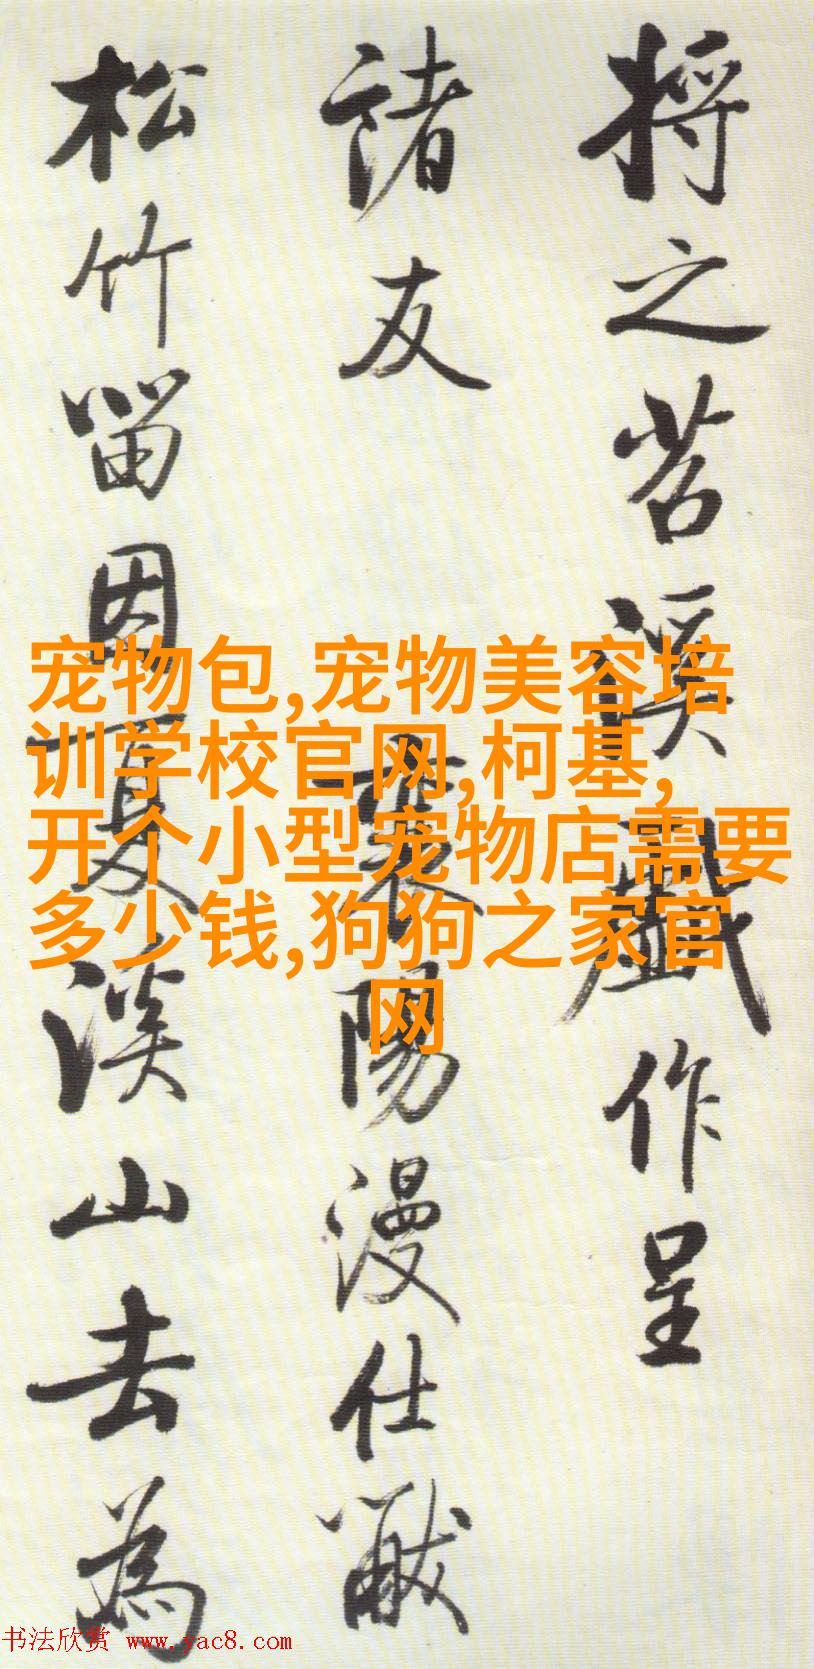 將之苕溪戲作呈
諸友 襄陽漫仕黻
松竹留因夏溪山去為
宠物包,宠物美容培
训学校官网,柯基,
开个小型宠物店需要
多少钱,狗狗之家官
网
书法欣赏 www.yac8.com